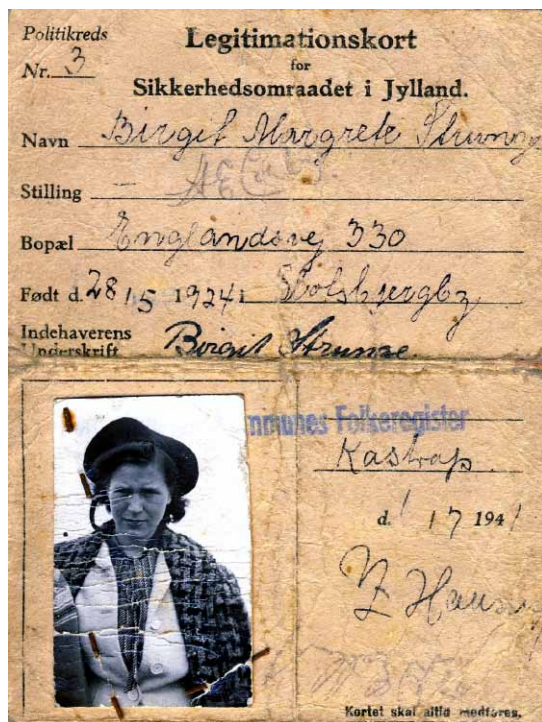 Politikreds
Nr. 3
Legitimationskort
for
Sikkerhedsomraadet i Jylland.
Navn Birgit Margrete Strunge
Stilling —
Bopæl Englandsvej 330
Født d. 28/5 1924 i
Indehaverens
Underskrift Birgit Strunge.
mmunes Folkeregister
Kastrup.
d. 1 / 7 1941
Kortet skal altid medføres.